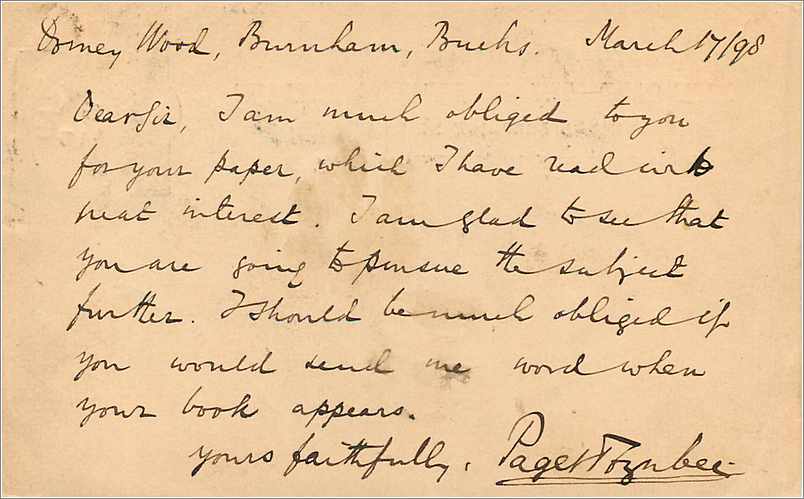 Dorney Wood, Burnham, Bucks. March 17/98
Dear Sir, I am much obliged to you
for your paper, which I have read with
great interest. I am glad to see that
you are going to pursue the subject
further. I should be much obliged if
you would send me word when
your book appears.
yours faithfully, Paget Toynbee